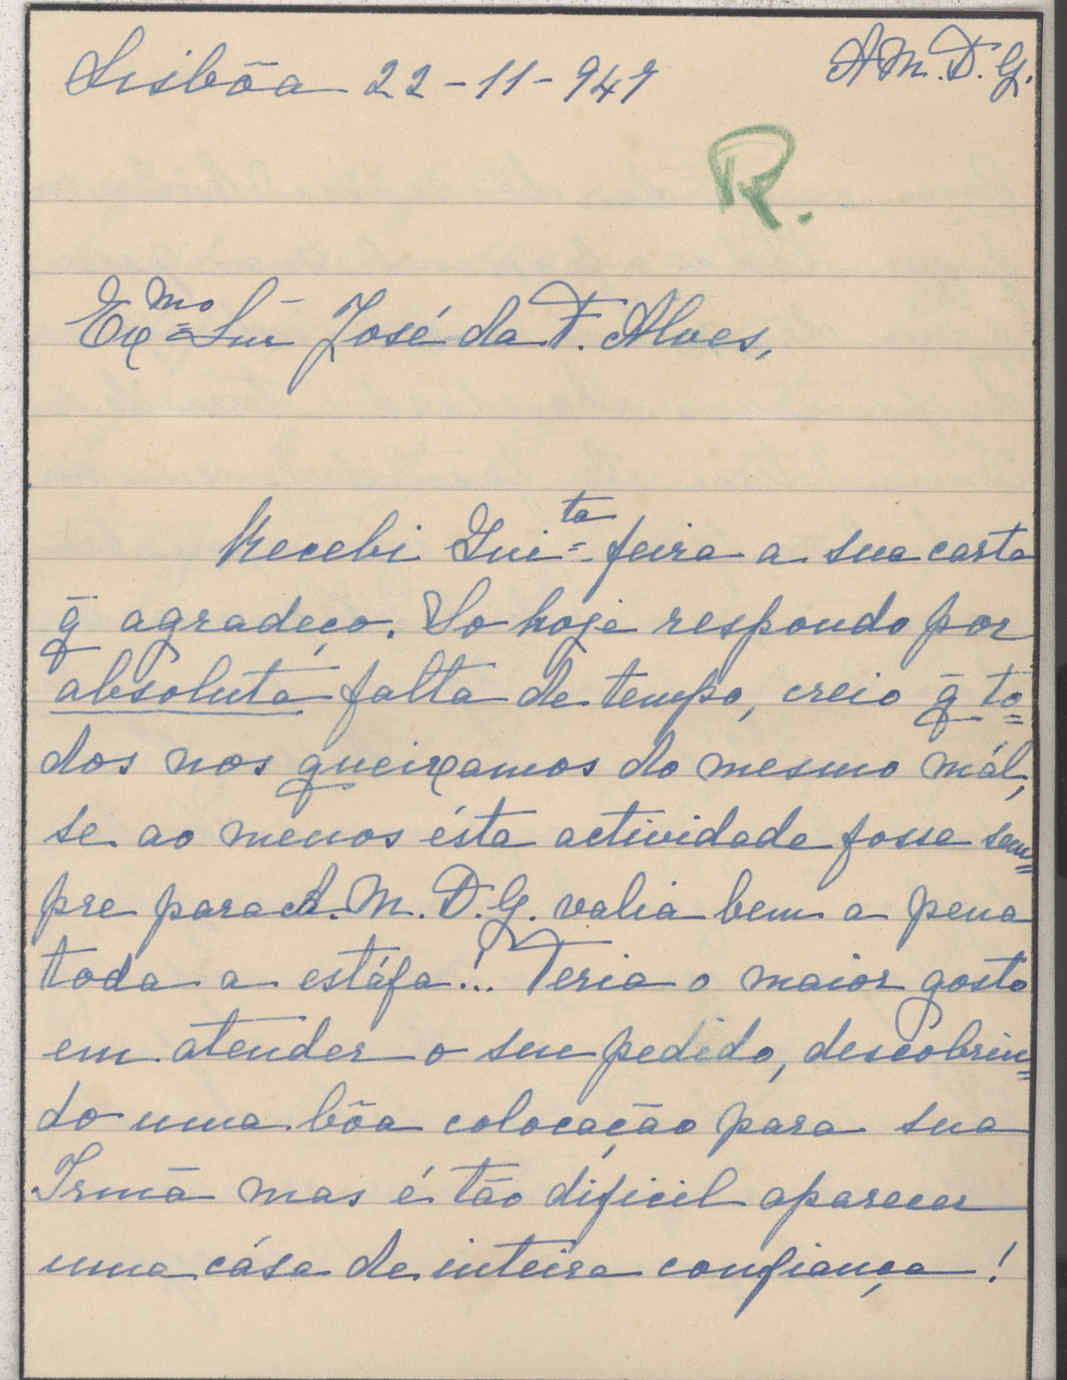 Lisbôa 22-11-947
A M. D. G.
R.
Ex.mo Snr José da F. Alves,
Recebi Qui.ta feira a sua carta
q̄ agradeço. So hoje respondo por
absoluta falta de tempo, creio q̄ to=
dos nos queixamos do mesmo mál,
se ao menos ésta actividade fosse sem=
pre para A. M. D. G. valia bem a pena
toda a estáfa!.. Teria o maior gosto
em atender o seu pedido, descobrin=
do uma bôa colocação para sua
Irmã mas é tão dificil aparecer
uma cása de inteira confiança!